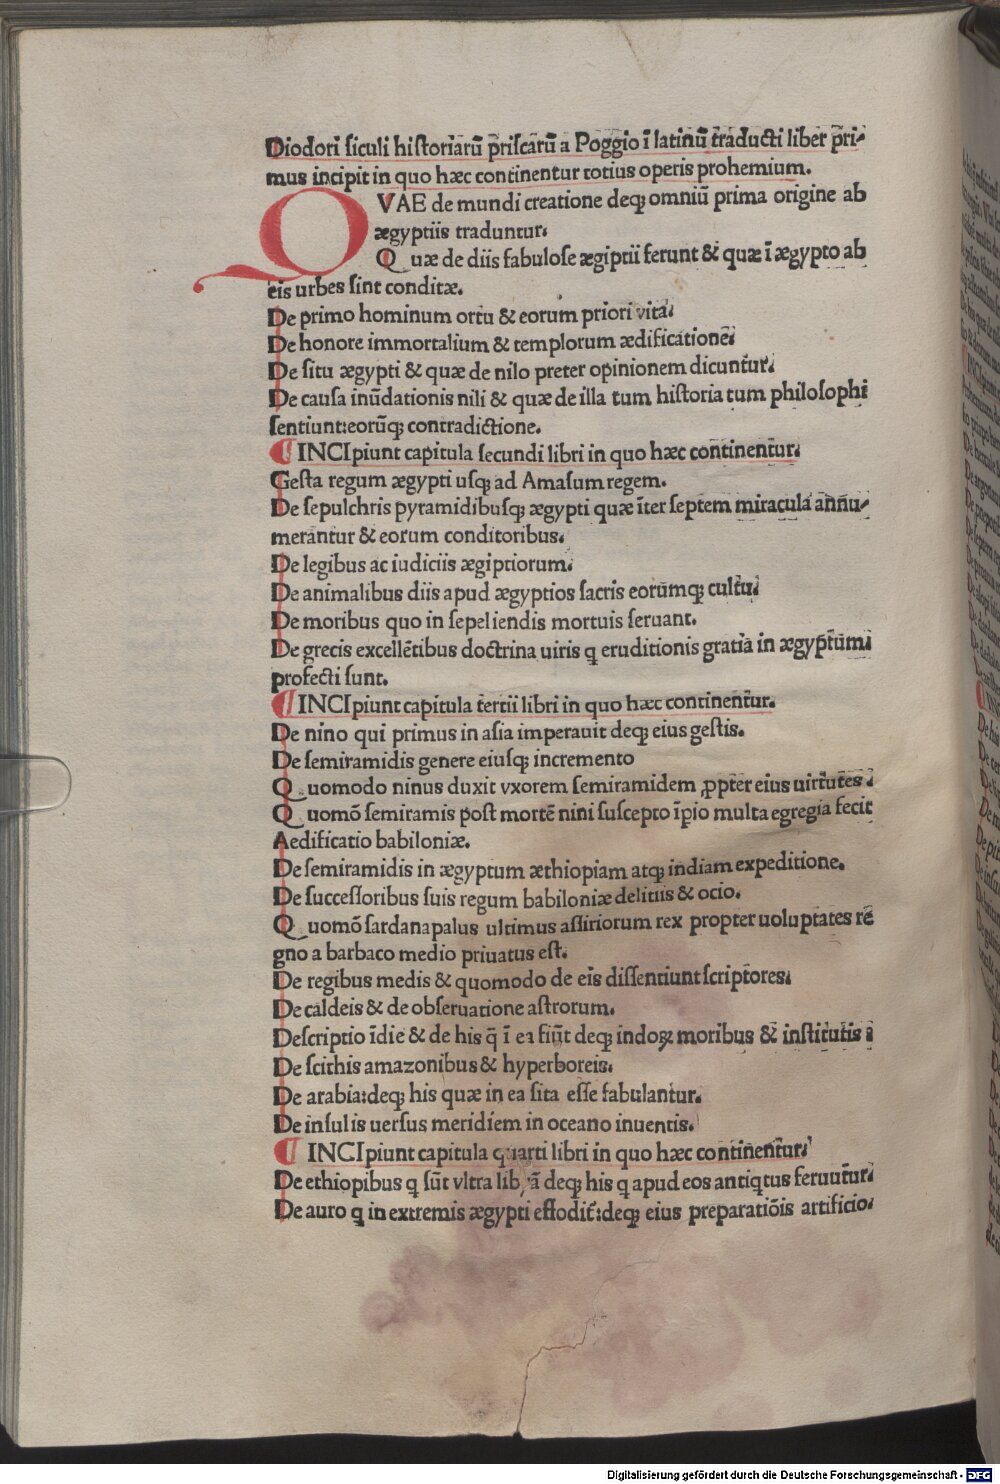 Diodori siculi historiarũ priscarũ a Poggio ĩ latinũ traducti liber pri-
mus incipit in quo hæc continentur totius operis prohemium.
QVAE de mundi creatione deqꝫ omniũ prima origine ab
ægyptiis traduntur.
Quæ de diis fabulose ægiptii ferunt & quæ ĩ ægypto ab
eis urbes sint conditæ.
De primo hominum ortu & eorum priori vita.
De honore immortalium & templorum ædificatione.
De situ ægypti & quæ de nilo preter opinionem dicuntur.
De causa inũdationis nili & quæ de illa tum historia tum philosophi
sentiunt:eorũqꝫ contradictione.
¶ INCIpiunt capitula secundi libri in quo hæc continentur.
Gesta regum ægypti usqꝫ ad Amasum regem.
De sepulchris pyramidibusqꝫ ægypti quæ ĩter septem miracula annu-
merantur & eorum conditoribus.
De legibus ac iudiciis ægiptiorum.
De animalibus diis apud ægyptios sacris eorũmqꝫ cultu.
De moribus quo in sepeliendis mortuis seruant.
De grecis excellẽtibus doctrina uiris q eruditionis gratia in ægyptũm
profecti sunt.
¶ INCIpiunt capitula tertii libri in quo hæc continentur.
De nino qui primus in asia imperauit deqꝫ eius gestis.
De semiramidis genere eiusqꝫ incremento
Quomodo ninus duxit vxorem semiramidem ꝓpter eius uirtutes.
Quomõ semiramis post mortẽ nini suscepto ĩpio multa egregia fecit
Aedificatio babiloniæ.
De semiramidis in ægyptum æthiopiam atqꝫ indiam expeditione.
De successoribus suis regum babiloniæ delitiis & ocio.
Quomõ sardanapalus ultimus assiriorum rex propter uoluptates re
gno a barbaco medio priuatus est.
De regibus medis & quomodo de eis dissentiunt scriptores.
De caldeis & de obseruatione astrorum.
Descriptio ĩdie & de his q̃ ĩ ea fiũt deqꝫ indoꝝ moribus & institutis
De scithis amazonibus & hyperboreis.
De arabia:deqꝫ his quæ in ea sita esse fabulantur.
De insulis uersus meridiem in oceano inuentis.
¶ INCIpiunt capitula quarti libri in quo hæc continentur.
De ethiopibus q sũt vltra libyã deqꝫ his q apud eos antiqtus feruutur.
De auro q in extremis ægypti effodit̃:deqꝫ eius preparatiõis artificio.
Digitalisierung gefördert durch die Deutsche Forschungsgemeinschaft - DFG